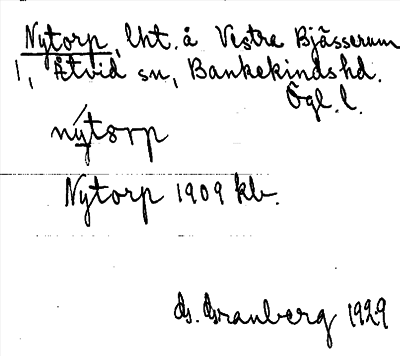 Nytorp, lht. å Vestre Bjässerum
1, Åtvid sn, Bankekinds hd.
Ögl. l.
nýtorp
Nytorp 1909 kb.
G. Granberg 1929